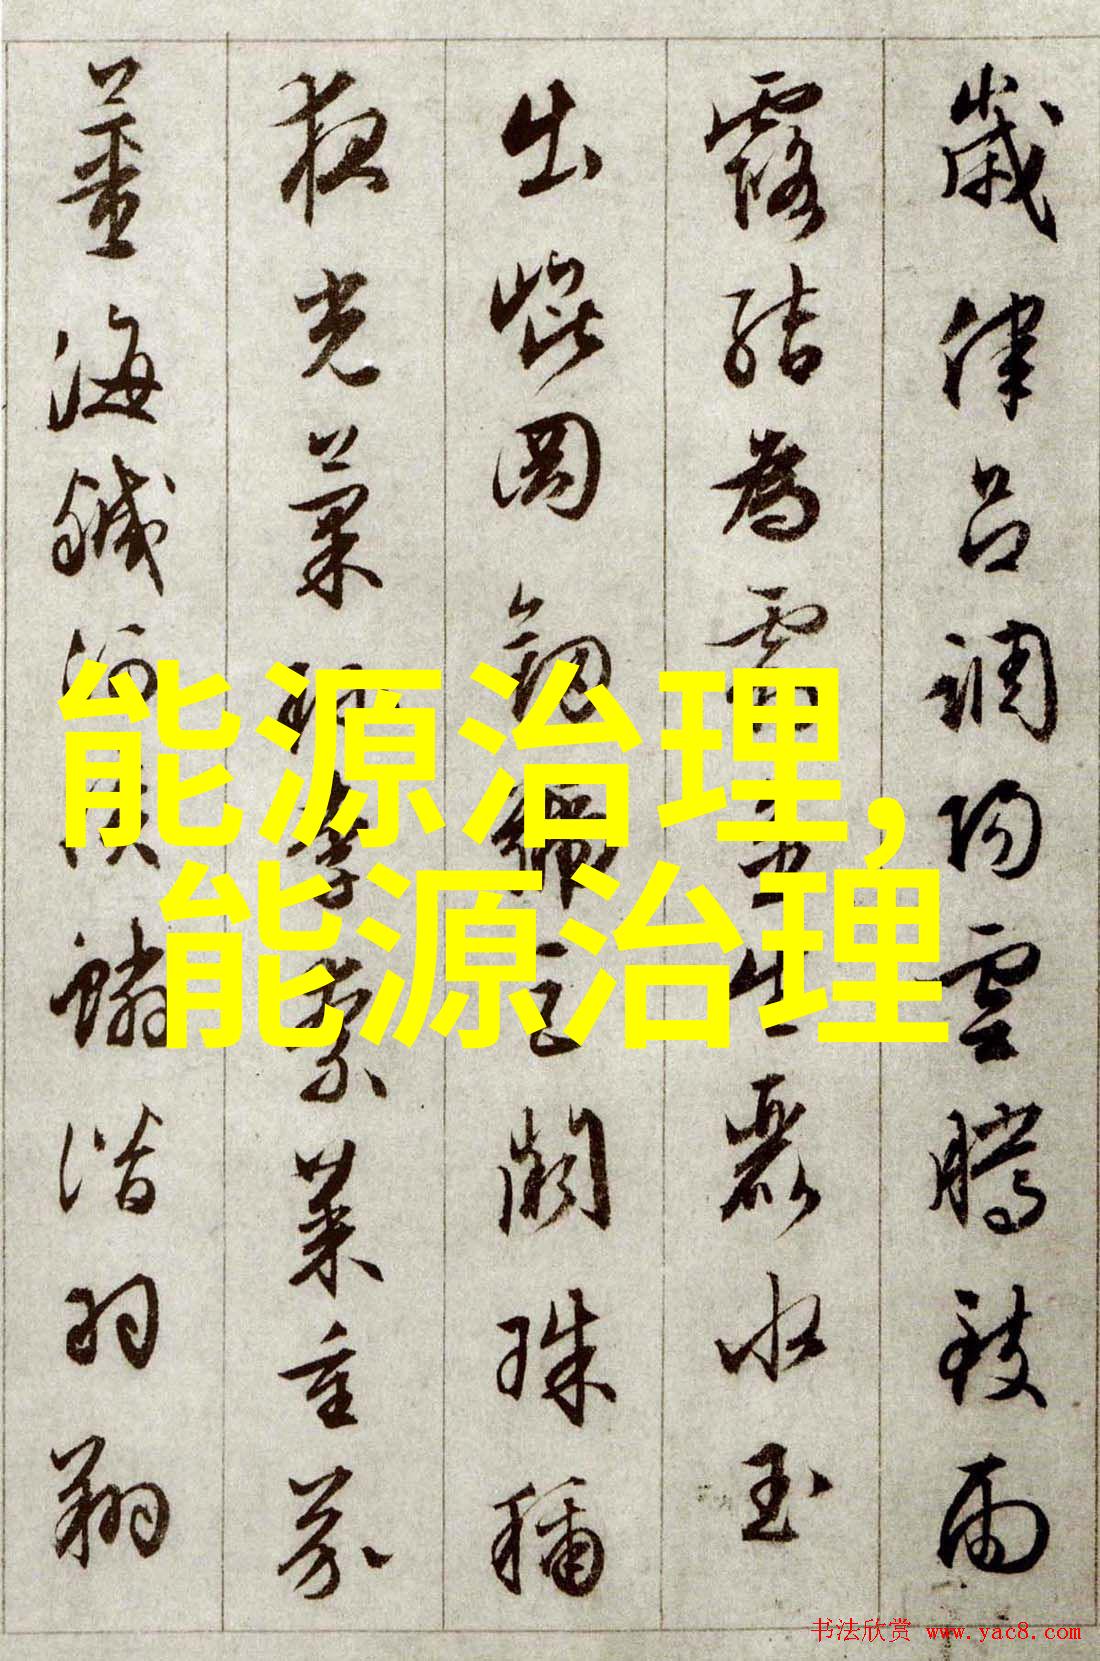 歲律呂調陽雲騰致雨
露結為霜金生麗水玉
出崐岡劒號巨闕珠稱
夜光菓珍李柰菜重芥
薑海鹹河淡鱗潛羽翔
能源治理,
能源治理
书法欣赏 www.yac8.com